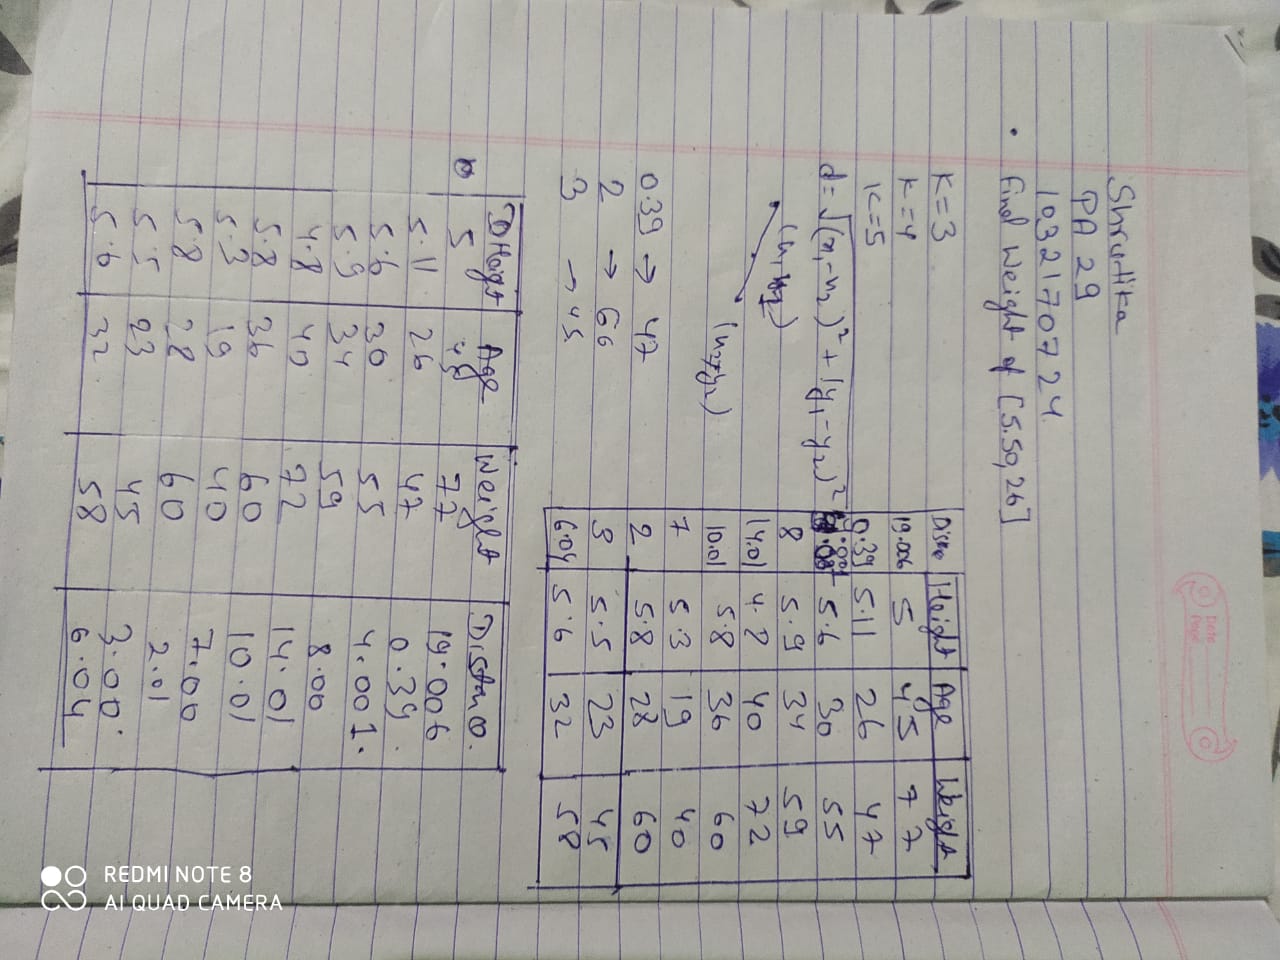 Date
Page
Shrutika
PA 29
1032170724.
• Find Weight of [5.50, 26]
K=3
K=4
K=5
d= √(x₁-x₂)² + (y₁-y₂)²
0.39 → 47
2 → 60
3 → 45.
Height Age Weight
19.006 5 45 77
0.39 5.11 26 47
5.6 30 55
8 5.9 34 59
14.01 4.8 40 72
10.01 5.8 36 60
7 5.3 19 40
2 5.8 28 60
3 5.5 23 45
6.04 5.6 32 58
Age Weight
5 45 77 19.006
5.11 26 47 0.39
5.6 30 55 4.001.
5.9 34 59 8.00
4.8 40 72 14.01
5.8 36 60 10.01
5.3 19 40 7.00
5.8 28 60 2.01
5.5 23 45 3.00
5.6 32 58 6.04
REDMI NOTE 8
AI QUAD CAMERA